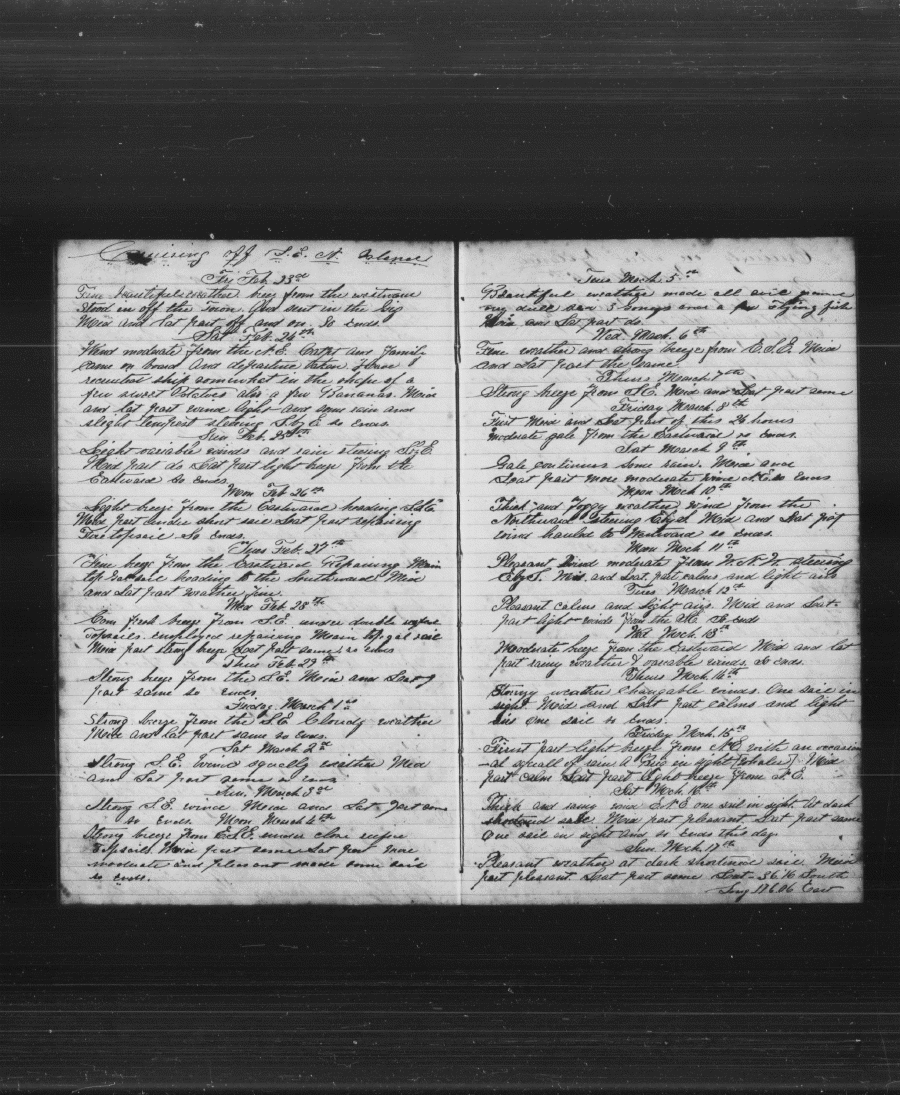 Cruising off S.E. N. Valence
Fry Feb. 23rd
Fine beautiful weather breeze from the westward
stood in off the town. And sent in the big
Mid and lat part off and on. So ends
Sat Feb. 24th
Wind moderate from the N.E. Capt and family
came on board and departure taken I have
recruited ship somewhat in the shape of a
few sweet Potatoes also a few Bananas. Mid
and lat part wind light and some rain and
slight tempest stering S by E so ends.
Sun Feb. 25th
Light variable winds and rain stering S by E
Mid part do Lat part light breeze from the
Eastward So ends
Mon Feb 26th
Light breeze from the Eastward heading
Mid part under short sail Lat part repairing
Foretopsail So ends.
Tues Feb. 27th
Fine breeze from the Eastward Repairing Main
top heading to the Southward Mid
and Lat part weather fine
Wed Feb 28th
Com fresh breeze from S.E. under double
topsails employed repairing Main topgal sail
Mid part strong breeze Lat part same so ends
Thurs Feb. 29th
Strong breeze from the S.E. Mid and Lat
part same so ends.
Friday March 1st
Strong breeze from the S.E Cloudy weather
Mid and lat part same so ends.
Sat March 2nd
Strong S.E. Wind squally weather Mid
and Lat part same so ends
Sun. March 3rd
Strong S.E. wind Mid and Lat part same
so Ends. Mon March 4th
Strong breeze from under close
topsails Mid part same Lat part more
moderate and pleasant made some sail
so ends.
Tues Mch. 5th
Beautiful weather made all sail
very dull saw 5 and a few flying fish
Mid and Lat part do.
Wed March 6th
Fine weather and strong breeze from E.S.E. Mid
and Lat part the same
Thurs March 7th
Strong breeze from S.E. Mid and Lat part same
Friday March. 8th
First Mid and Lat part of this 24 hours
moderate gale from the Eastward so ends.
Sat March 9th
Gale continues some rain. Mid and
Lat part more moderate wind N.E. so ends
Mon Mch 10th
Thick and Foggy weather wind from the
Northward Stering Mid and Lat part
wind hauled to Westward so ends.
Mon Mch 11th
Pleasant wind moderate from W.N.W. steering
E by S. Mid and Lat part calms and light airs
Tues. March 12th
Pleasant calms and light airs. Mid and Lat
part light winds from the So ends
Wed Mch. 13th
Moderate breeze from the Eastward Mid and lat
part rainy weather & variable winds. So ends.
Thurs Mch. 14th
Stormy weather changable winds. One sail in
sight. Mid and Lat part calms and light
airs One sail so ends.
Friday Mch. 15th
First part light breeze from N.E. with an occasion
-al squall of rain A Brig in sight [whaler] Mid
part calm Lat part light breeze from N.E.
Sat Mch. 16th
Thick and rainy wind N.E one sail in sight. At dark
shortened sail. Mid part pleasant Lat part same
One sail in sight and so ends this day
Sun. Mch. 17th
Pleasant weather at dark shortened sail. Mid
part pleasant. Lat part same Lat 36.16 South
Long 176.06 East